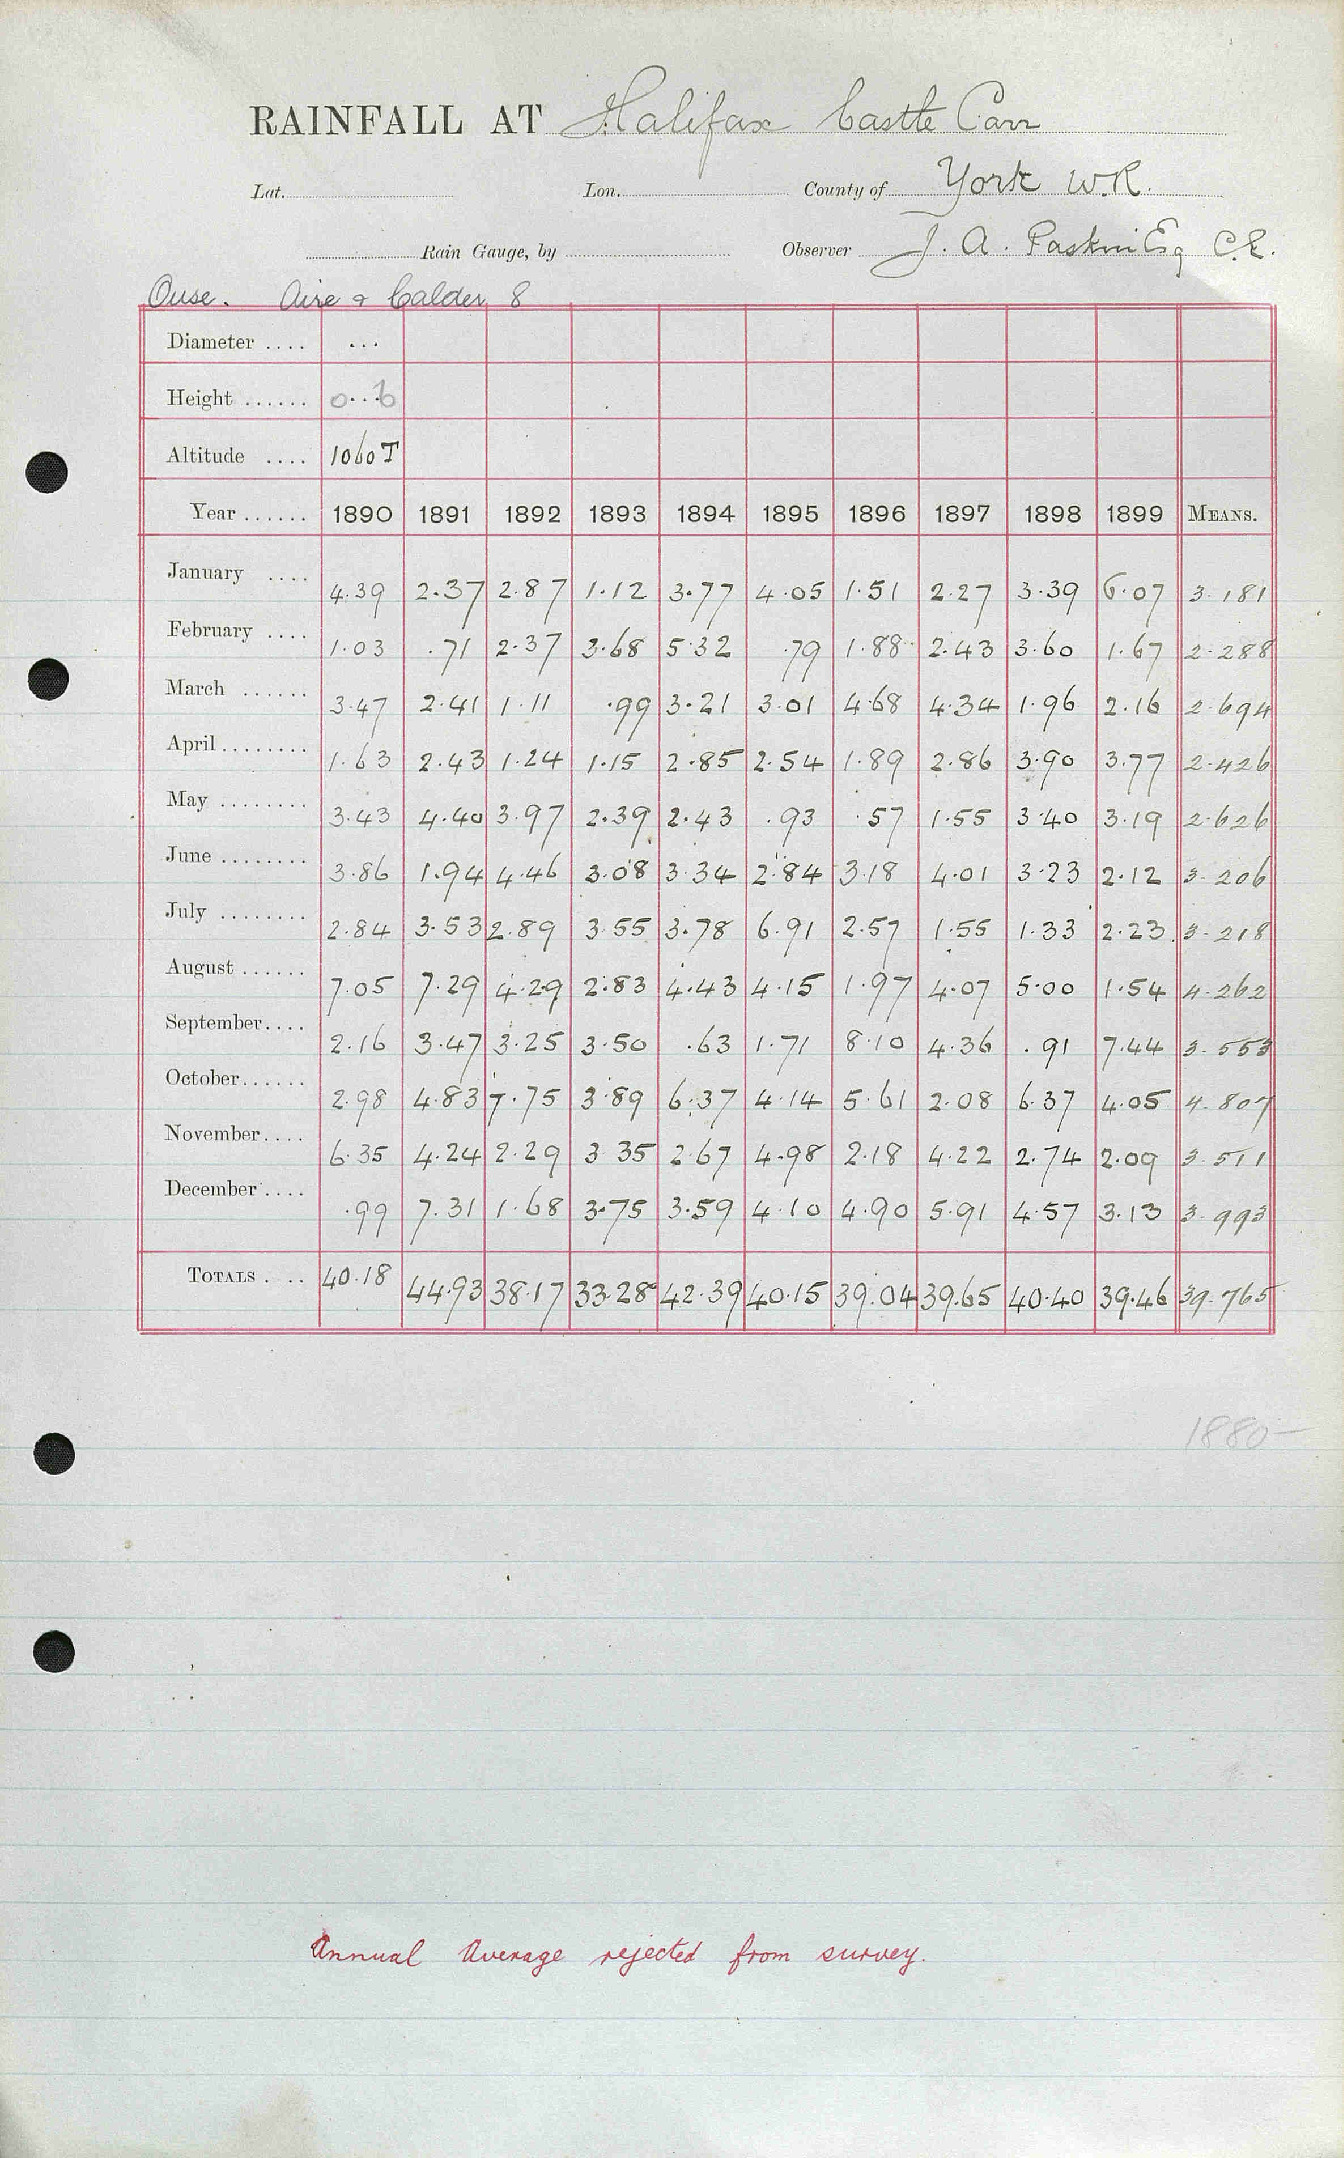 RAINFALL AT Halifax Castle Carr
Lat. Lon. County of York W.R.
Rain Gauge, by Observer J. A. Paskin Esq C.E.
Ouse. Aire & Calder 8
Diameter .... ...
Height ...... 0...6
Altitude .... 1060 T
Year ...... 1890 1891 1892 1893 1894 1895 1896 1897 1898 1899 MEANS.
January .... 4.39 2.37 2.87 1.12 3.77 4.05 1.51 2.27 3.39 6.07 3.181
February .... 1.03 .71 2.37 3.68 5.32 .79 1.88 2.43 3.60 1.67 2.288
March ...... 3.47 2.41 1.11 .99 3.21 3.01 4.68 4.34 1.96 2.16 2.694
April ........ 1.63 2.43 1.24 1.15 2.85 2.54 1.89 2.86 3.90 3.77 2.426
May ........ 3.43 4.40 3.97 2.39 2.43 .93 .57 1.55 3.40 3.19 2.626
June ........ 3.86 1.94 4.46 3.08 3.34 2.84 3.18 4.01 3.23 2.12 3.206
July ........ 2.84 3.53 2.89 3.55 3.78 6.91 2.57 1.55 1.33 2.23 3.218
August ...... 7.05 7.29 4.29 2.83 4.43 4.15 1.97 4.07 5.00 1.54 4.262
September .... 2.16 3.47 3.25 3.50 .63 1.71 8.10 4.36 .91 7.44 3.553
October ...... 2.98 4.83 7.75 3.89 6.37 4.14 5.61 2.08 6.37 4.05 4.807
November .... 6.35 4.24 2.29 3.35 2.67 4.98 2.18 4.22 2.74 2.09 3.511
December .... .99 7.31 1.68 3.75 3.59 4.10 4.90 5.91 4.57 3.13 3.993
TOTALS .... 40.18 44.93 38.17 33.28 42.39 40.15 39.04 39.65 40.40 39.46 39.765
1880—
Annual Average rejected from survey.